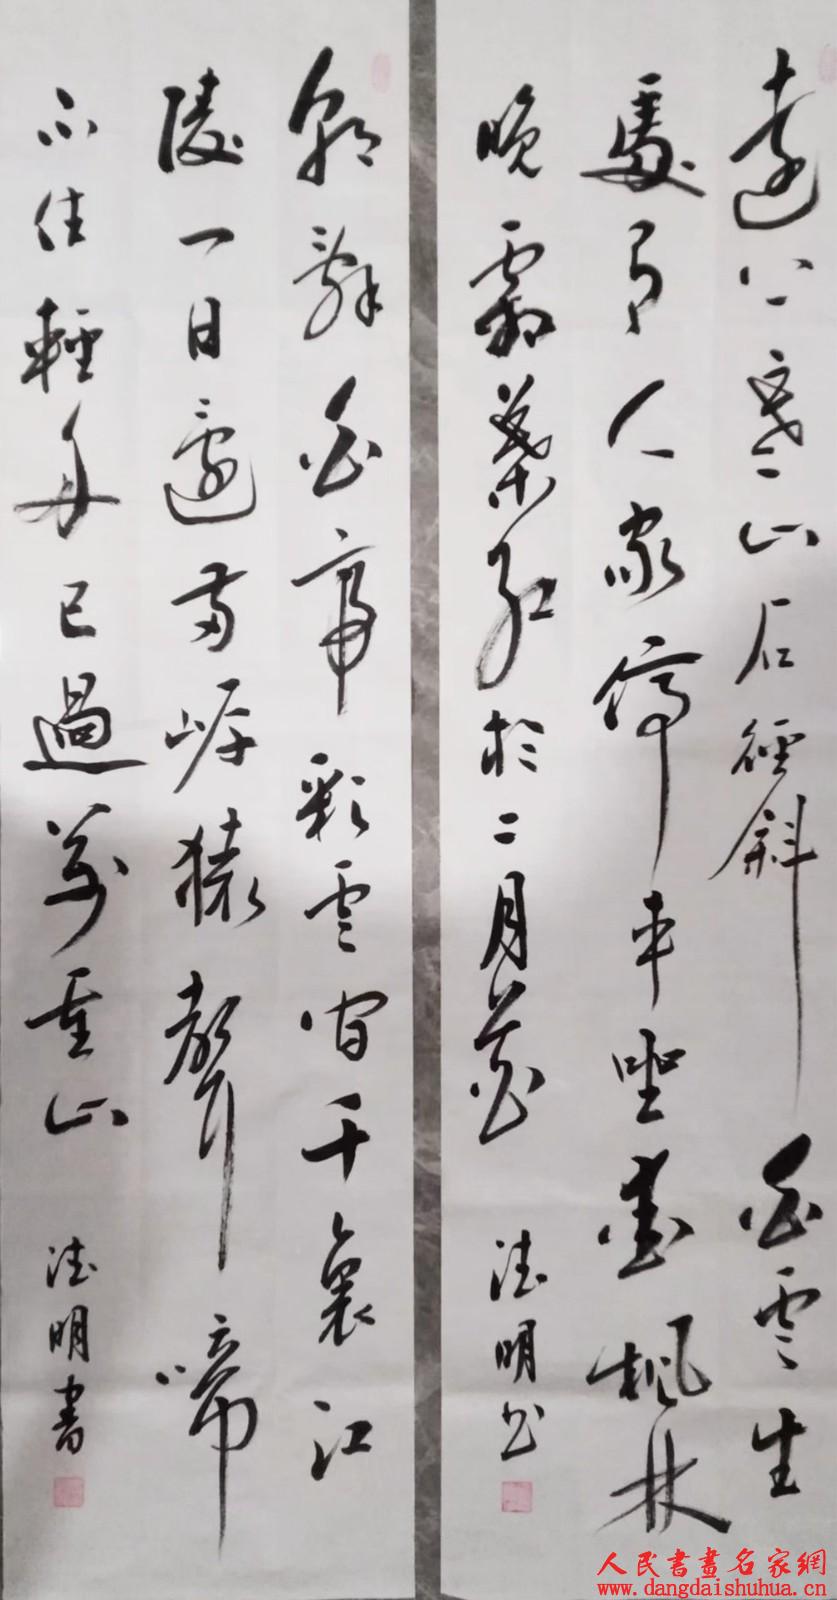 遠上寒山石徑斜白雲生
處有人家停車坐愛楓林
晚霜葉紅於二月花 德明书
朝辭白帝彩雲間千裏江
陵一日還兩岸猿聲啼
不住輕舟已過萬重山 德明書
人民書畫名家網
www.dangdaishuhua.cn